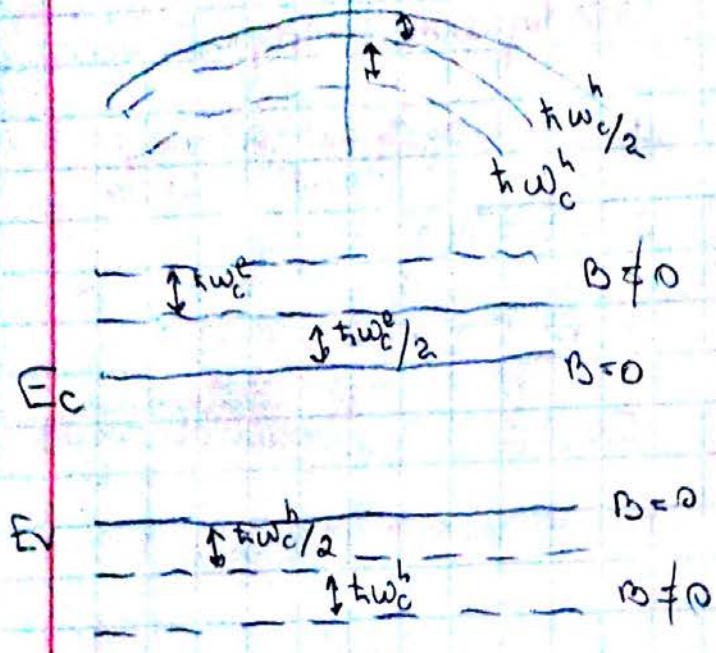 ħω_c^h/2
ħω_c^h
ħω_c^e B≠0
ħω_c^e/2
E_c B=0
E_v B=0
ħω_c^h/2
ħω_c^h B≠0